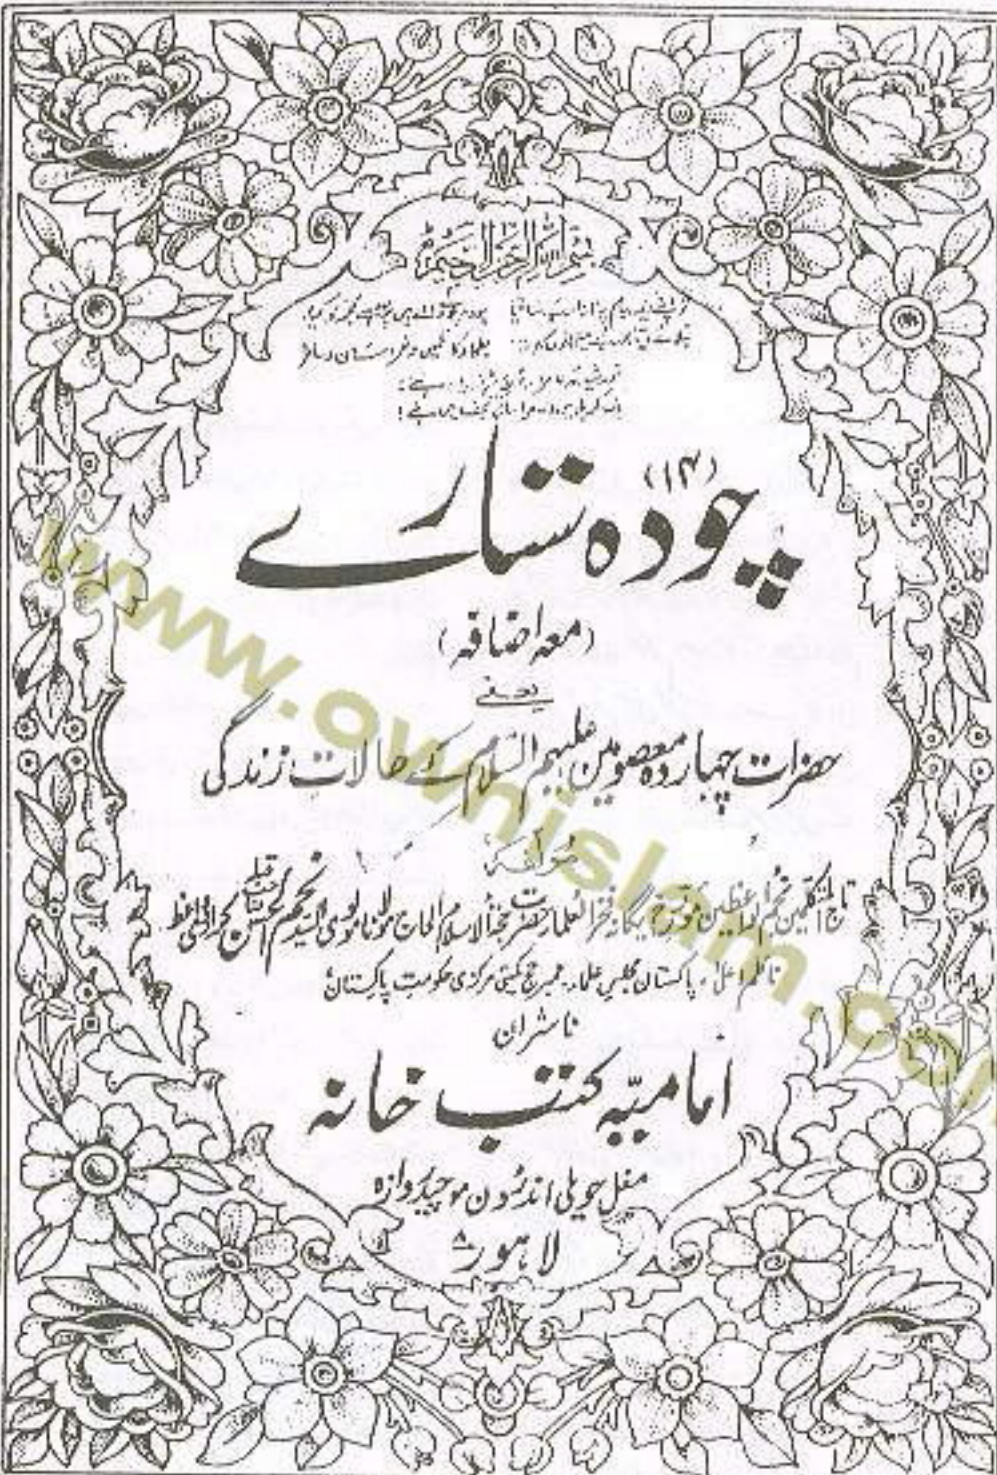 بسم الله الرحمن الرحيم
چودہ ستارے (۱۴)
(معہ اضافہ)
یعنی
حضرات چہاردہ معصومین علیہم السلام کے حالات زندگی
تاج المتکلمین نجم الواعظین مؤرخ یگانہ فخر العلماء حضرت حجۃ الاسلام الحاج مولانا مولوی السید نجم الحسن صاحب قبلہ کراروی واعظ
ناظم اعلیٰ، پاکستان مجلس علماء، ممبر حج کمیٹی مرکزی حکومت پاکستان
ناشران
امامیہ کتب خانہ
مغل حویلی اندرون موچیدروازہ
لاہور ۸
www.ownislam.com